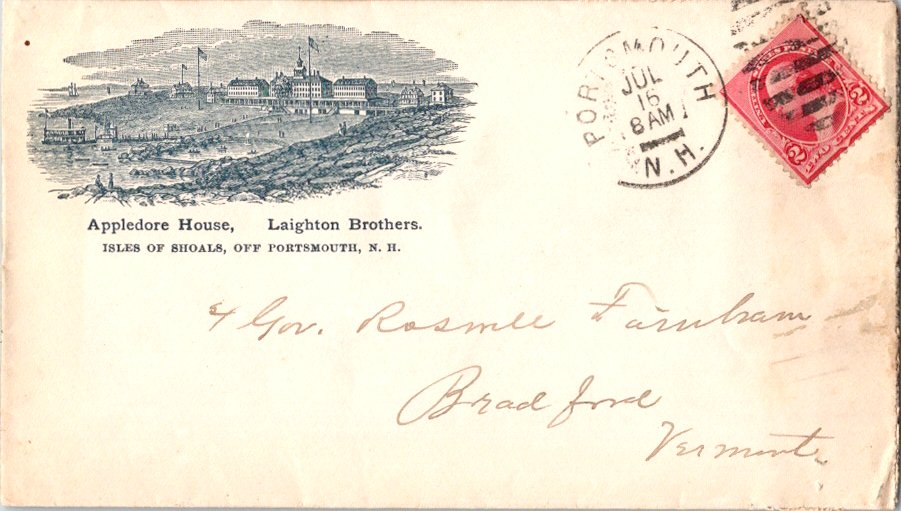 Appledore House, Laighton Brothers.
ISLES OF SHOALS, OFF PORTSMOUTH, N. H.
PORTSMOUTH
JUL
16
8 AM
N. H.
2 2
TWO CENTS
Gov. Roswell Farnham
Bradford
Vermont